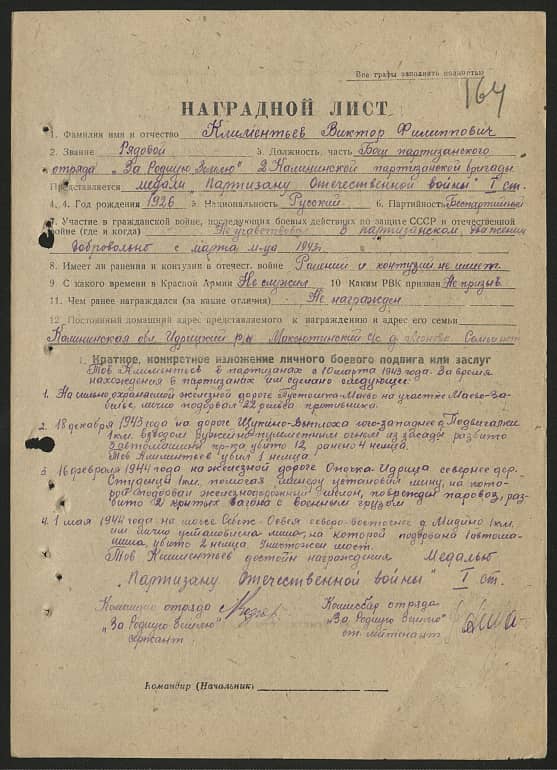 Все графы заполнять полностью
164
НАГРАДНОЙ ЛИСТ
1. Фамилия имя и отчество Климентьев Виктор Филиппович
2. Звание Рядовой 3. Должность, часть Боец партизанского
отряда "За Родную Землю" 2 Калининской партизанской бригады
Представляется медали "Партизану Отечественной войны" I ст.
4. Год рождения 1926 5. Национальность Русский 6. Партийность Беспартийный
7. Участие в гражданской войне, последующих боевых действиях по защите СССР и отечественной
войне (где и когда) Не участвовал В партизанском движении
добровольно с марта м-ца 1943г.
8. Имеет ли ранения и контузии в отечест. войне Ранений и контузий не имеет.
9. С какого времени в Красной Армии Не служил 10 Каким РВК призван Не призыв.
11. Чем ранее награждался (за какие отличия) Не награжден
12. Постоянный домашний адрес представляемого к награждению и адрес его семьи
Калининская обл. Идрицкий р-н Максютинский с/с д.
1. Краткое, конкретное изложение личного боевого подвига или заслуг
Тов Климентьев в партизанах с 10 марта 1943 года. За время
нахождения в партизанах им сделано следующее:
1. На сильно охраняемой железной дороге Пустошка-Маево на участке Маево-За-
белье лично подорвал 22 рельса противника.
2. 18 декабря 1943 года на дороге юго-западнее д. Подвигалки
1 км. взводом ружейно-пулеметным огнем из засады разбито
3 автомашины пр-ка убито 12 ранено 4 немца.
Тов Климентьев убил 1 немца.
3. 16 февраля 1944 года на железной дороге Идрица севернее дер.
Студеница 1 км. помогая минеру установил мину, на кото-
рой подорван железнодорожный эшелон, поврежден паровоз, раз-
бито 2 крытых вагона с военным грузом
4. 1 мая 1944 года на шоссе северо-восточнее д. Мидино 1 км.
им лично установлена мина, на которой подорвана 1 автома-
шина, убито 2 немца уничтожен мост.
Тов Климентьев достоин награждения Медалью
"Партизану Отечественной войны" I ст.
Командир отряда Комиссар отряда
"За Родную Землю" "За Родную Землю"
сержант. ст. лейтенант
Командир (Начальник)